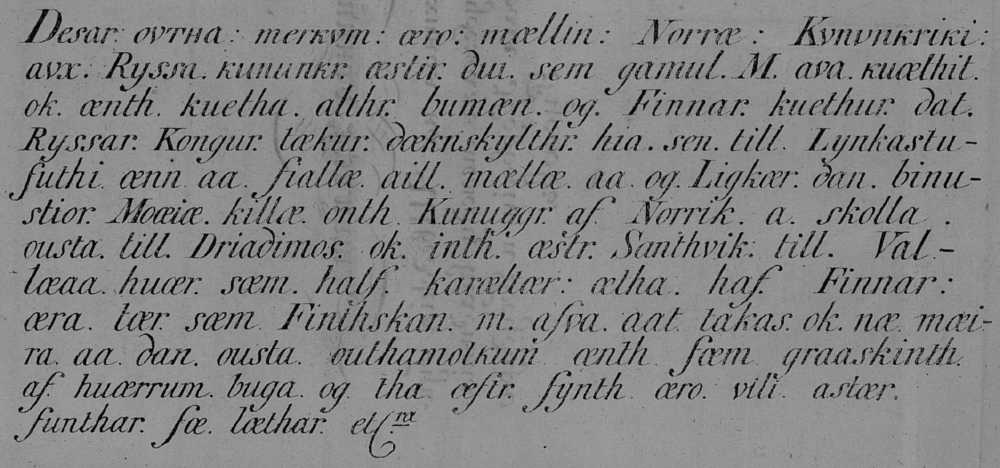 Desar: ουτηα: merkvm: æro: mællin: Norræ: Kvnvnkriki:
avx. Ryssa. kununkr. æstir. dui. sem gamul. M. ava. kuæthit.
ok. ænth. kuetha. althr. bumæn. og. Finnar. kuethur. dat.
Ryssar. Kongur. tækur. dæknskylthr. hia. sen. till. Lynkastu-
futhi ænn aa. fiallæ. aill. mællæ. aa. og. Ligkær. dan. binu-
stior. Moæiæ. killæ. onth. Kunuggr. af. Norrik. a. skolla.
ousta. till. Driadimos. ok. inth. æstr. Santhvik. till. Val-
læaa. huær. sæm. half. karæltær: ætha. haf. Finnar:
æra. tær. sæm. Finthskan. m. afva. aat. takas. ok. næ. mæi-
ra. aa. dan. ousta. outhamolkum ænth. fæm. graaskinth.
af. huærrum. buga. og. tha. æftr. synth. æro. vili. astær.
sunthar. fæ. læthar. etc ra